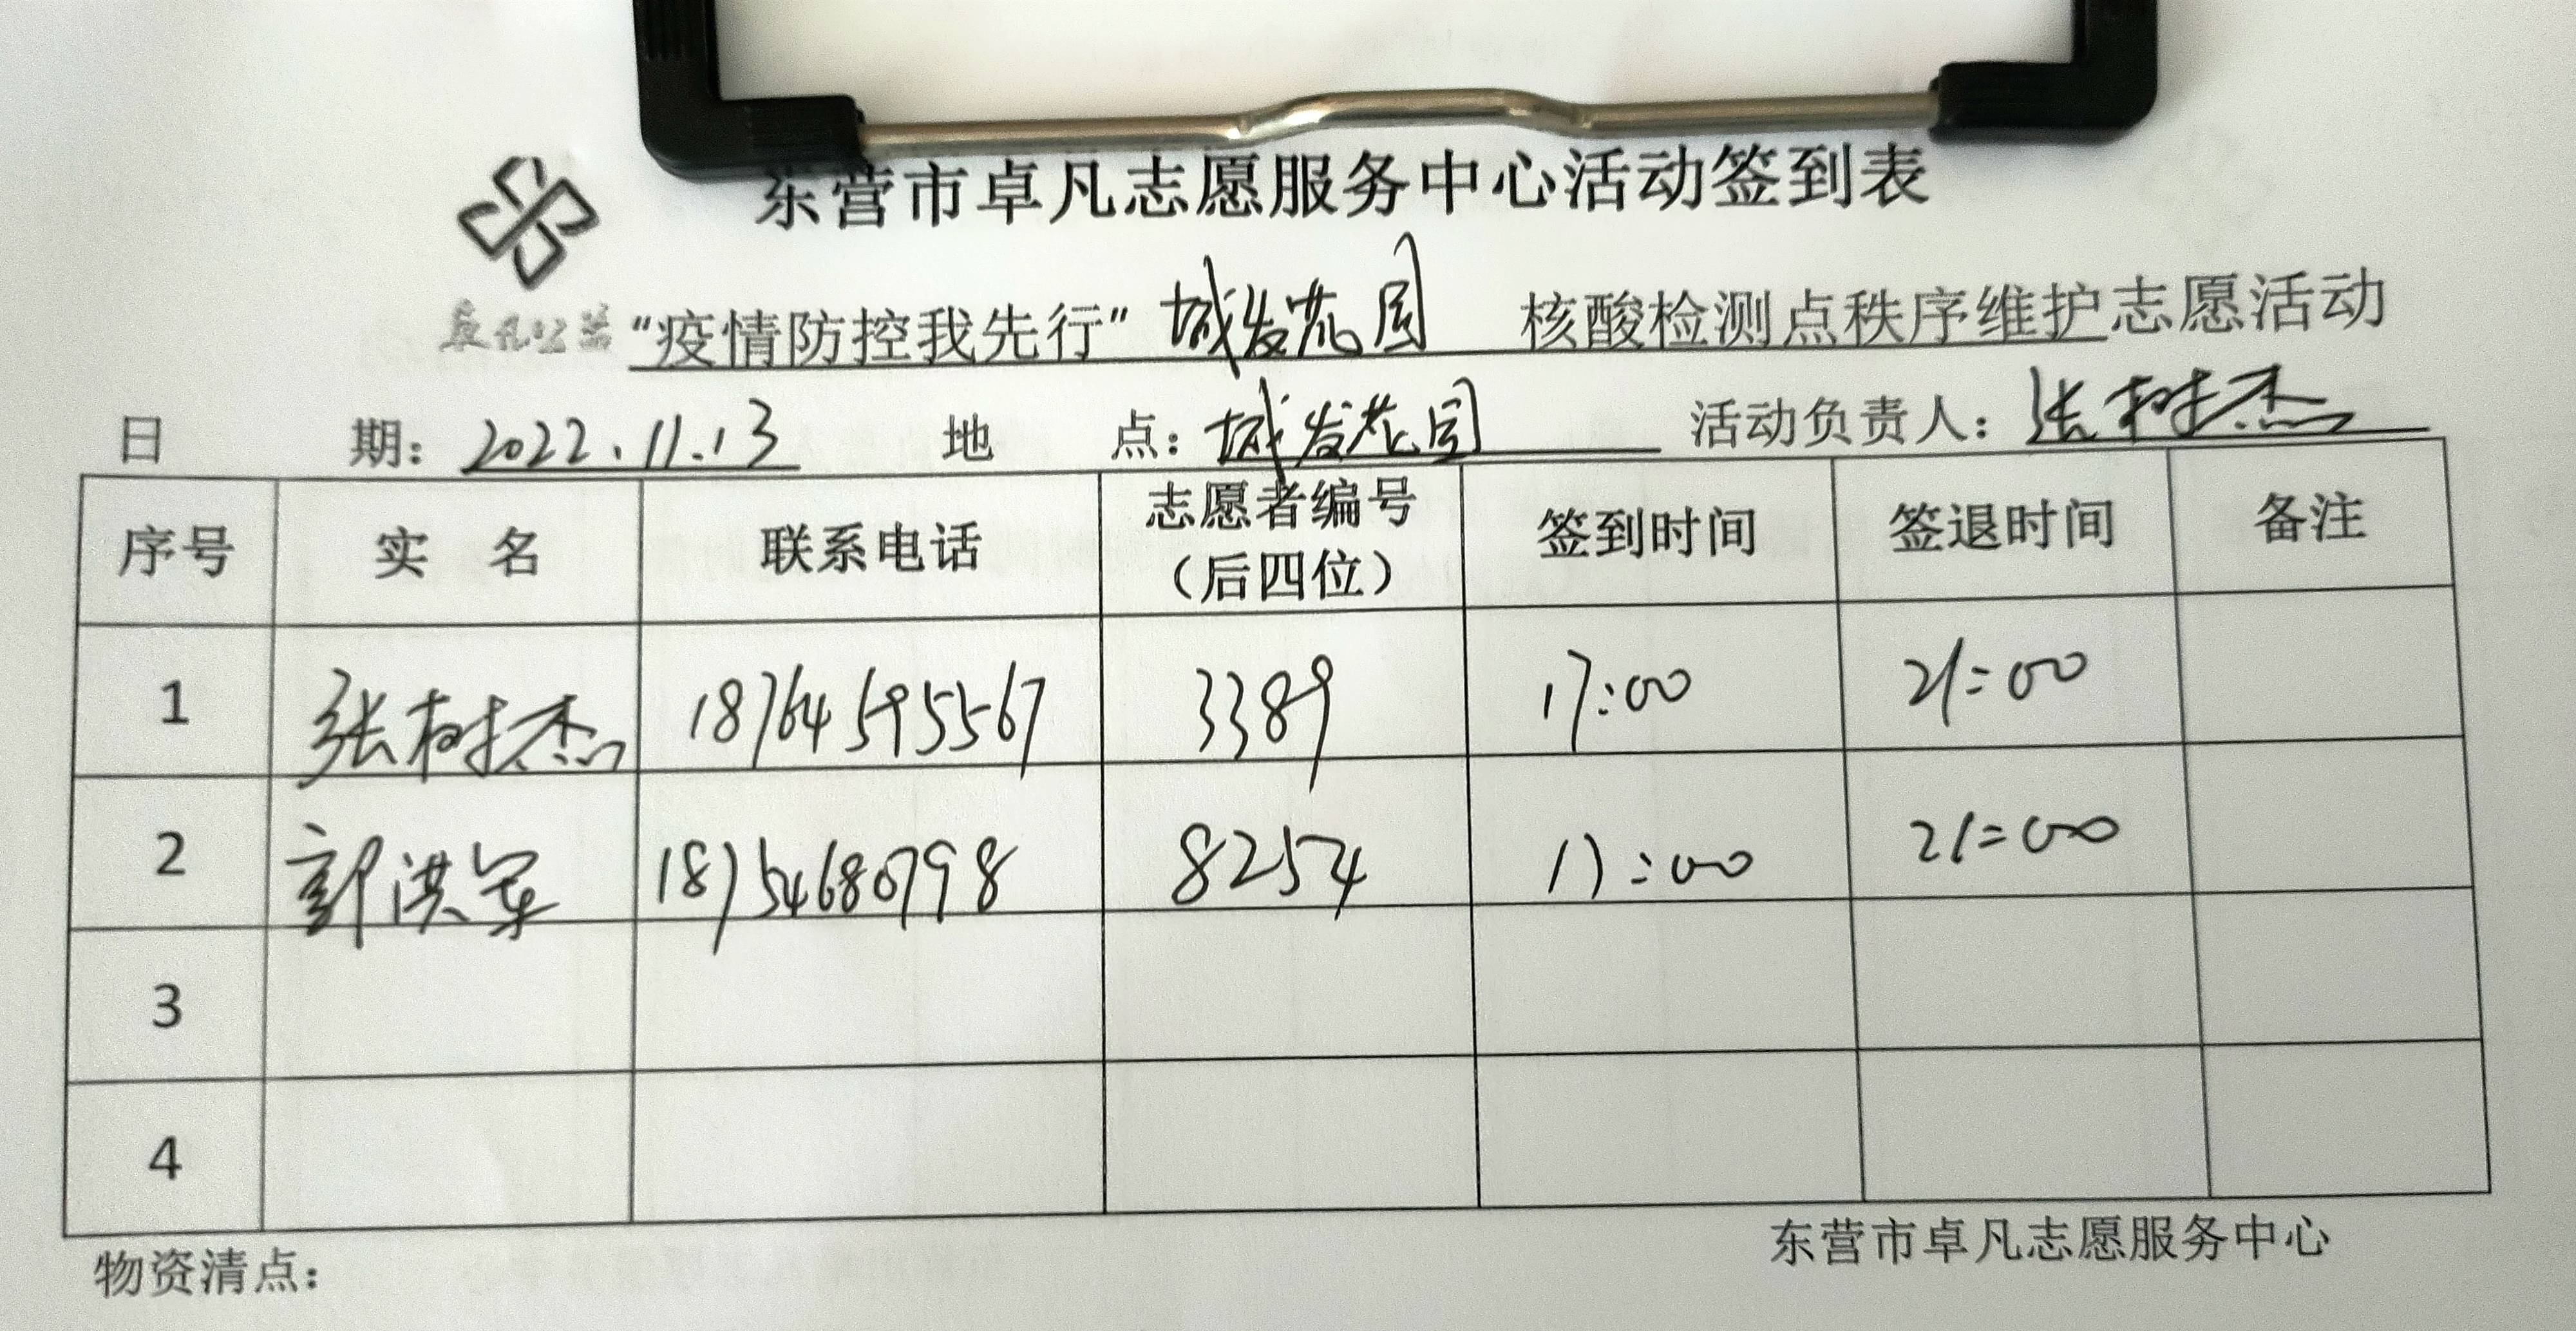 东营市卓凡志愿服务中心活动签到表
卓凡公益
“疫情防控我先行” 城发花园 核酸检测点秩序维护志愿活动
日 期：2022.11.13 地 点：城发花园 活动负责人：张树杰
序号 实 名 联系电话 志愿者编号（后四位） 签到时间 签退时间 备注
1 张树杰 18764595567 3389 17:00 21:00
2 郭洪军 18754680798 8254 17:00 21:00
3
4
物资清点： 东营市卓凡志愿服务中心